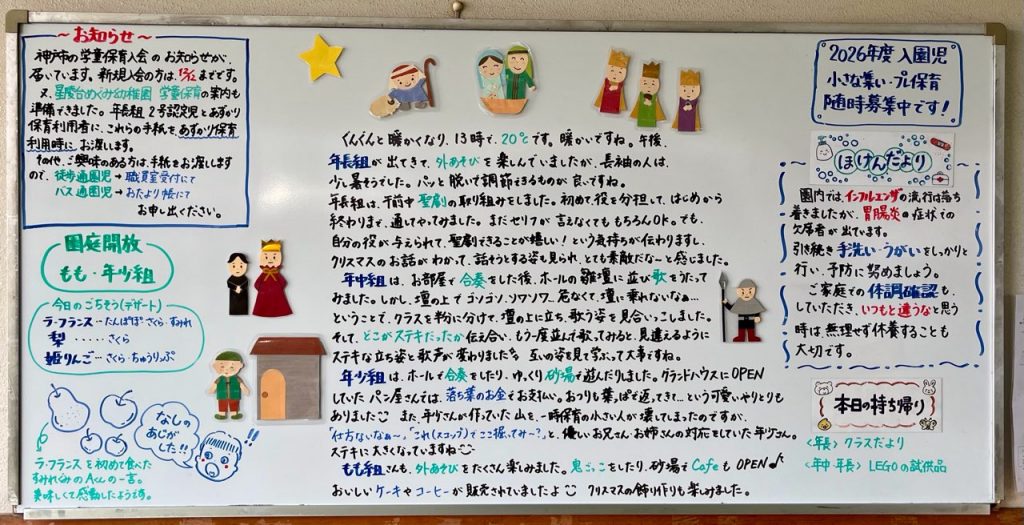 ～お知らせ～
神戸市の学童保育入会のお知らせが、
届いています。新規入会の方は、12/12までです。
又、星陵台めぐみ幼稚園 学童保育の案内も
準備できました。年長組2号認定児とあずかり
保育利用者に、これらの手紙をあずかり保育
利用時に、お渡します。
その他、ご興味のある方は、手紙をお渡しします
ので、徒歩通園児→職員室受付にて
バス通園児→おたより帳にて
お申し出ください。
園庭開放
もも・年少組
今日のごちそう(デザート)
ラ・フランス…たんぽぽ・さくら・すみれ
梨……さくら
姫りんご…さくら・ちゅうりっぷ
なしの
あじが
した!!
!!
ラ・フランスを初めて食べた
すみれぐみのAくんの一言。
美味しくて感動したようです。
ぐんぐんと暖かくなり、13時で、20℃です。暖かいですね。午後、
年長組が出てきて、外あそびを楽しんでいましたが、長袖の人は、
少し暑そうでした。パッと脱いで調節できるものが良いですね。
年長組は、午前中聖劇の取り組みをしました。初めて、役を分担して、はじめから
終わりまで、通してやってみました。まだセリフが言えなくてももちろんOK。でも、
自分の役が与えられて、聖劇できることが嬉しい!という気持ちが伝わりますし、
クリスマスのお話がわかって、話そうとする姿も見られ、とても素敵だな～と感じました。
年中組は、お部屋で合奏をした後、ホールの雛壇に並び歌をうたって
みました。しかし、壇の上でゴソゴソ、ソワソワ…危なくて、壇に乗れないなぁ…
ということで、クラスを半分に分けて、壇の上に立ち、歌う姿を見合いっこしました。
そして、どこがステキだったか伝え合い、もう一度並んで歌ってみると、見違えるように
ステキな立ち姿と歌声が変わりました。互いの姿を見て学ぶって大事ですね。
年少組は、ホールで合奏をしたり、ゆっくり砂場で遊んだりしました。グランドハウスにOPEN
していたパン屋さんでは、落ち葉のお金でお支払い。おつりも葉っぱで返ってきて…という可愛いやりとりも
ありました また、年少さんが作っていた山を、一時保育の小さい人が壊してしまったのですが、
「仕方ないなぁ～」「これ(スコップ)でここ掘ってみ～?」と、優しいお兄さん・お姉さんの対応をしていた年少さん。
ステキに大きくなっていますね
もも組さんも、外あそびをたくさん楽しみました。鬼ごっこをしたり、砂場でCafeもOPEN♪
おいしいケーキやコーヒーが販売されていましたよ クリスマスの飾り作りも楽しみました。
2026年度 入園児
小さな集い・プレ保育
随時募集中です!
ほけんだより
園内では、インフルエンザの流行は落ち
着きましたが、胃腸炎の症状での
欠席者が出ています。
引き続き手洗い・うがいをしっかりと
行い、予防に努めましょう。
ご家庭での体調確認も、
していただき、いつもと違うなと思う
時は、無理せず休養することも
大切です。
本日の持ち帰り
〈年長〉クラスだより
〈年中・年長〉LEGOの試供品